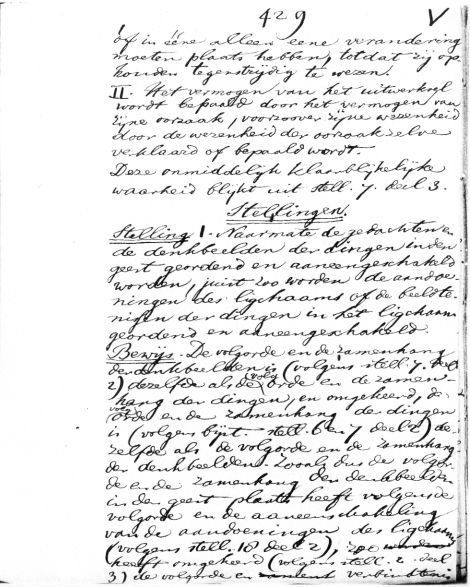 429 V
of in ééne alleen eene verandering
moeten plaats hebben, totdat zij op
houden tegenstrijdig te wezen.
II. Het vermogen van het uitwerksel
wordt bepaald door het vermogen van
zijne oorzaak, voorzoover zijne wezenheid
door de wezenheid der oorzaak zelve
verklaard of bepaald wordt.
Deze onmiddelijk klaarblijkelijke
waarheid blijkt uit stell. 7. deel 3.
Stellingen.
Stelling 1. Naarmate de gedachten en
de denkbeelden der dingen in den
geest geordend en aaneengeschakeld
worden, juist zoo worden de aandoe-
ningen des ligchaams of de beeldte-
nissen der dingen in het ligchaam
geordend en aaneengeschakeld.
Bewijs. De volgorde en de zamenhang
der denkbeelden is (volgens stell. 7. deel
2) dezelfde als de volgorde en de zamen-
hang der dingen, en omgekeerd, de
volgorde en de zamenhang der dingen
is (volgens bijv. stell. 6 en 7 deel 2) de-
zelfde als de volgorde en de zamenhang
der denkbeelden. Zooals dus de volgor-
de en de zamenhang der denkbeelden
in den geest plaats heeft volgens de
volgorde en de aaneenschakeling
van de aandoeningen des ligchaams
(volgens stell. 18 deel 2), zoo
heeft omgekeerd (volgens stell. 2. deel
3) de volgorde en